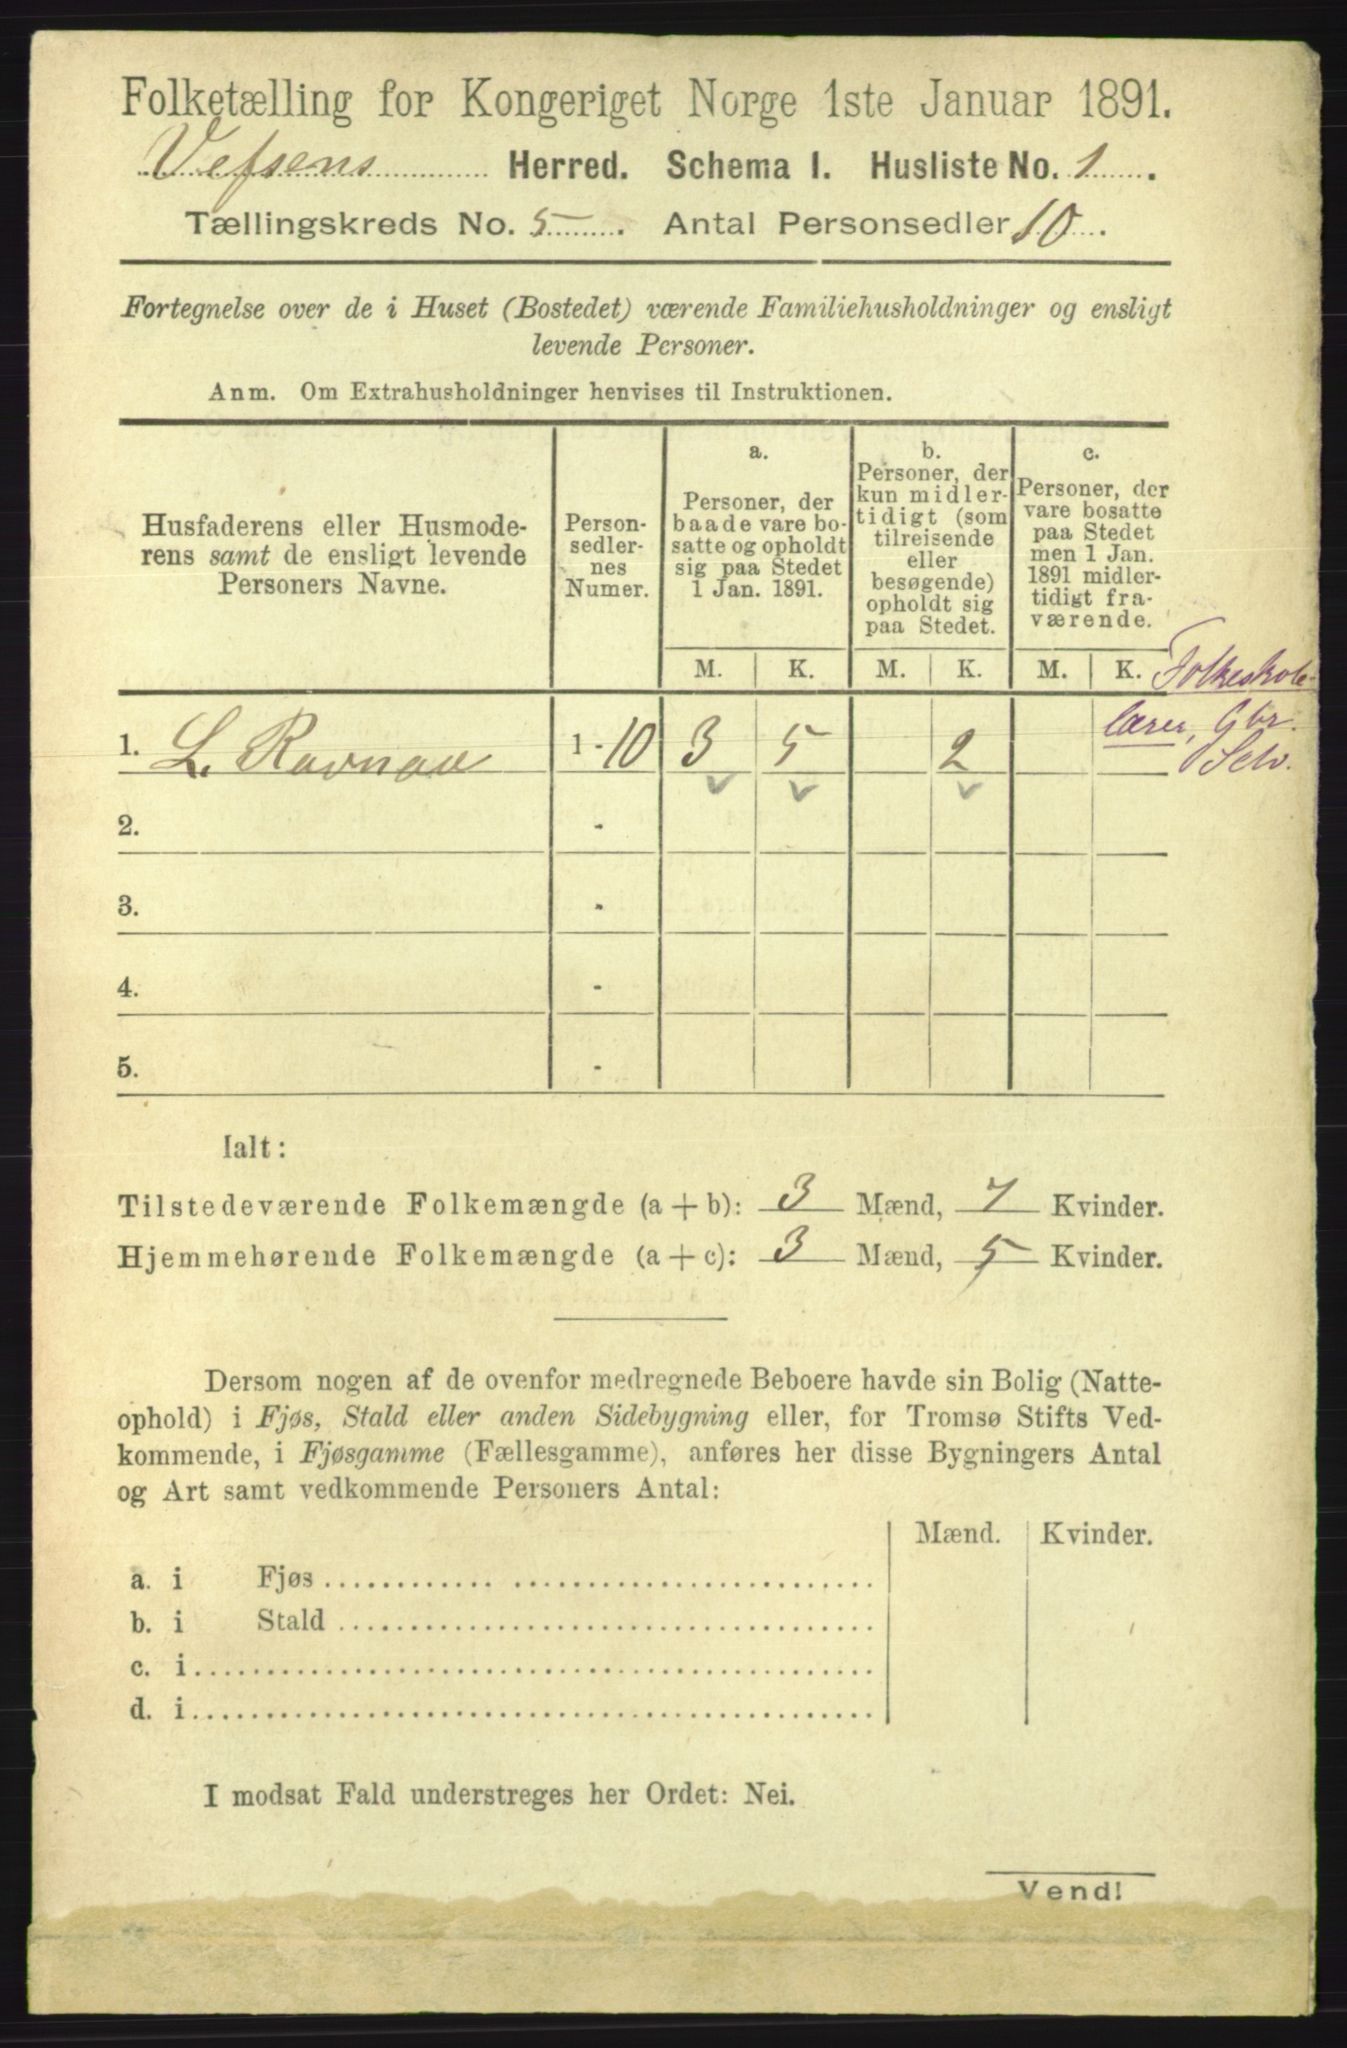 Folketælling for Kongeriget Norge 1ste Januar 1891.
Vefsens Herred. Schema I. Husliste No. 1.
Tællingskreds No. 5. Antal Personsedler 10.
Fortegnelse over de i Huset (Bostedet) værende Familiehusholdninger og ensligt
levende Personer.
Anm. Om Extrahusholdninger henvises til Instruktionen.
Husfaderens eller Husmode-
rens samt de ensligt levende
Personers Navne.
Person-
sedler-
nes
Numer.
a.
Personer, der
baade vare bo-
satte og opholdt
sig paa Stedet
1 Jan. 1891.
b.
Personer, der
kun midler-
tidigt (som
tilreisende
eller
besøgende)
opholdt sig
paa Stedet.
c.
Personer, der
vare bosatte
paa Stedet
men 1 Jan.
1891 midler-
tidigt fra-
værende.
M. K. M. K. M. K.
Folkeskole-
lærer, Gbr.
Selv.
1. L. Ravnaa 1 - 10 3 5 2
2. -
3. -
4. -
5. -
Ialt:
Tilstedeværende Folkemængde (a + b): 3 Mænd, 7 Kvinder.
Hjemmehørende Folkemængde (a + c): 3 Mænd, 5 Kvinder.
Dersom nogen af de ovenfor medregnede Beboere havde sin Bolig (Natte-
ophold) i Fjøs, Stald eller anden Sidebygning eller, for Tromsø Stifts Ved-
kommende, i Fjøsgamme (Fællesgamme), anføres her disse Bygningers Antal
og Art samt vedkommende Personers Antal:
Mænd. Kvinder.
a. i Fjøs
b. i Stald
c. i
d. i
I modsat Fald understreges her Ordet: Nei.
Vend!